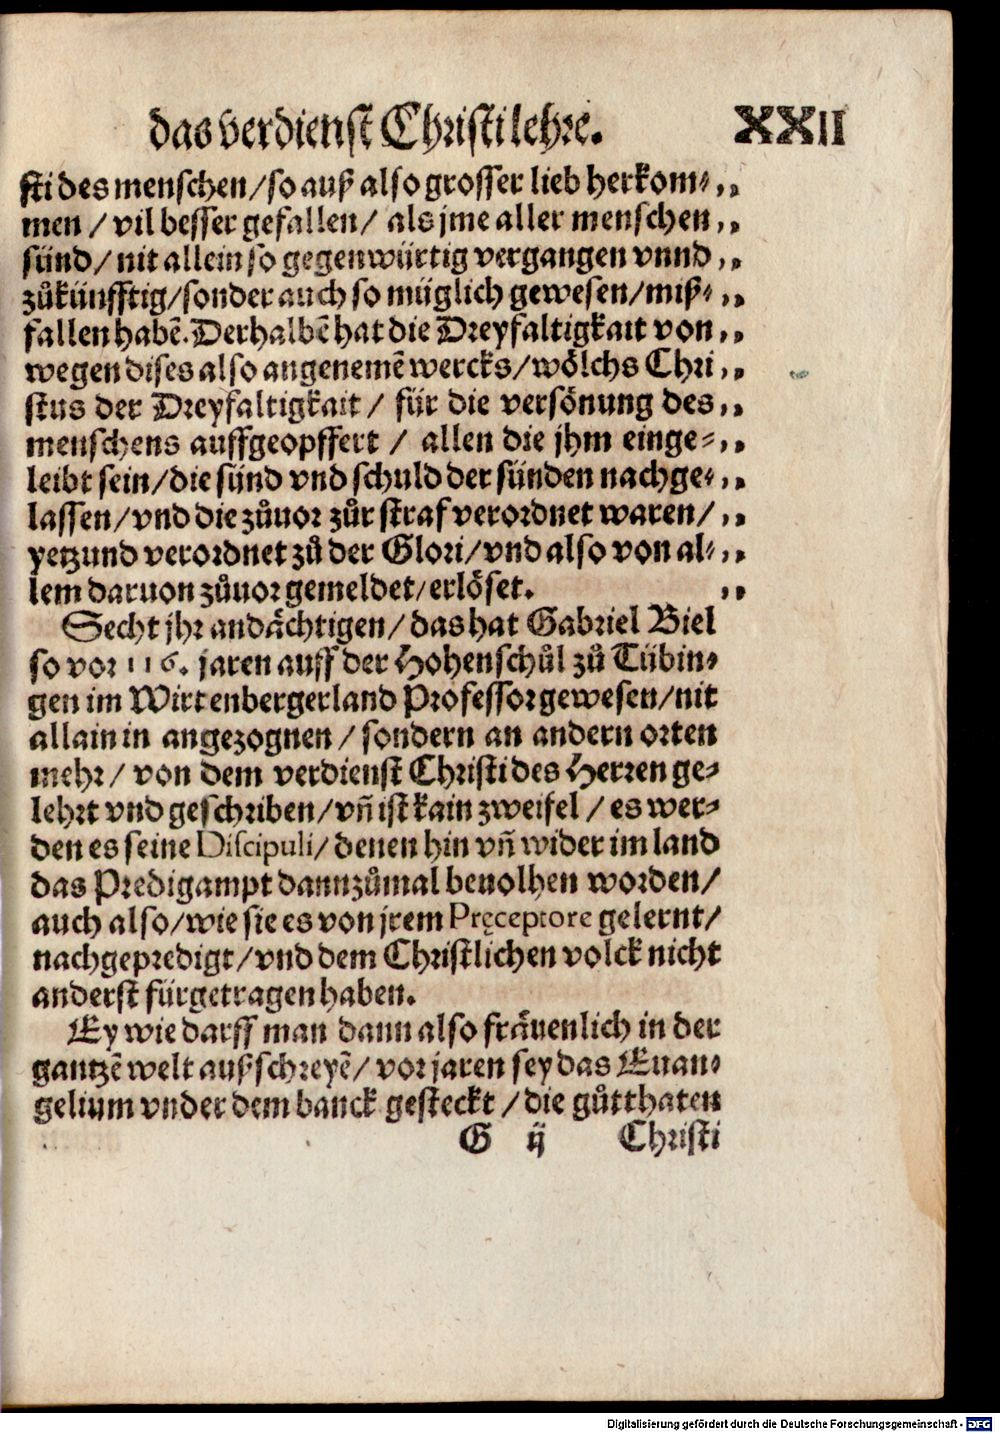 das verdienst Christi lehre. XXII
sti des menschen/so auß also grosser lieb herkom⸗ „
men / vil besser gefallen / als jme aller menschen „
sünd/ nit allein so gegenwürtig vergangen vnnd „
zůkünfftig/sonder auch so müglich gewesen/miß⸗ „
fallen habẽ. Derhalbẽ hat die Dreyfaltigkait von „
wegen dises also angenemẽ wercks/wölchs Chri „
stus der Dreyfaltigkait / für die versönung des „
menschens auffgeopffert / allen die jhm einge⸗ „
leibt sein/die sünd vnd schuld der sünden nachge⸗ „
lassen/vnd die zůuor zůr straf verordnet waren/ „
yetzund verordnet zů der Glori/vnd also von al⸗ „
lem daruon zůuor gemeldet/erlöset. „
Secht jhr andächtigen/das hat Gabriel Biel
so vor 116. jaren auff der Hohenschůl zů Tübin⸗
gen im Wirtenbergerland Professor gewesen/nit
allain in angezognen / sondern an andern orten
mehr/ von dem verdienst Christi des Herren ge⸗
lehrt vnd geschriben/vñ ist kain zweifel / es wer⸗
den es seine Discipuli/ denen hin vñ wider im land
das Predigampt dannzůmal beuolhen worden/
auch also/wie sie es von jrem Pręceptore gelernt/
nachgepredigt/vnd dem Christlichen volck nicht
anderst fürgetragen haben.
Ey wie darff man dann also fräuenlich in der
gantzẽ welt außschreyẽ/ vor jaren sey das Euan⸗
gelium vnder dem banck gesteckt / die gůtthaten
G ij Christi
Digitalisierung gefördert durch die Deutsche Forschungsgemeinschaft - DFG